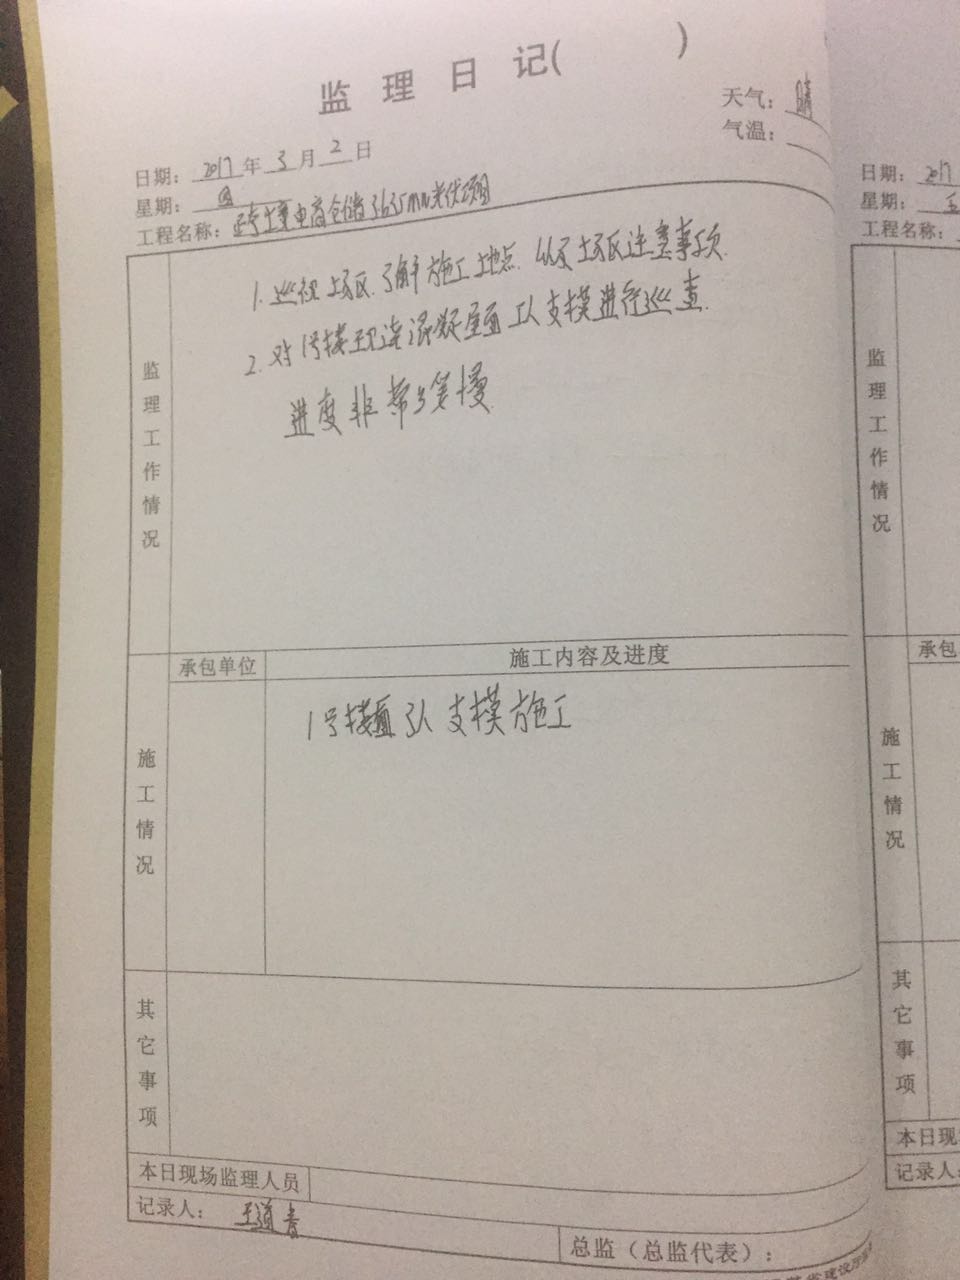 监理日记( )
天气： 晴
气温：
日期： 2017 年 3 月 2 日
星期： 四
工程名称： 电商仓储3.635mw光伏项目
监理工作情况
1. 巡视场区.了解施工地点.以及场区注意事项.
2. 对1号楼现浇混凝屋面工人支模进行巡查.
进度非常缓慢.
承包单位
施工内容及进度
施工情况
1号楼面 支模施工
其它事项
本日现场监理人员
记录人： 王道青
总监（总监代表）：
省建设厅
日期： 2017
星期： 五
工程名称：
监理工作情况
承包
施工情况
其它事项
本日现
记录人：